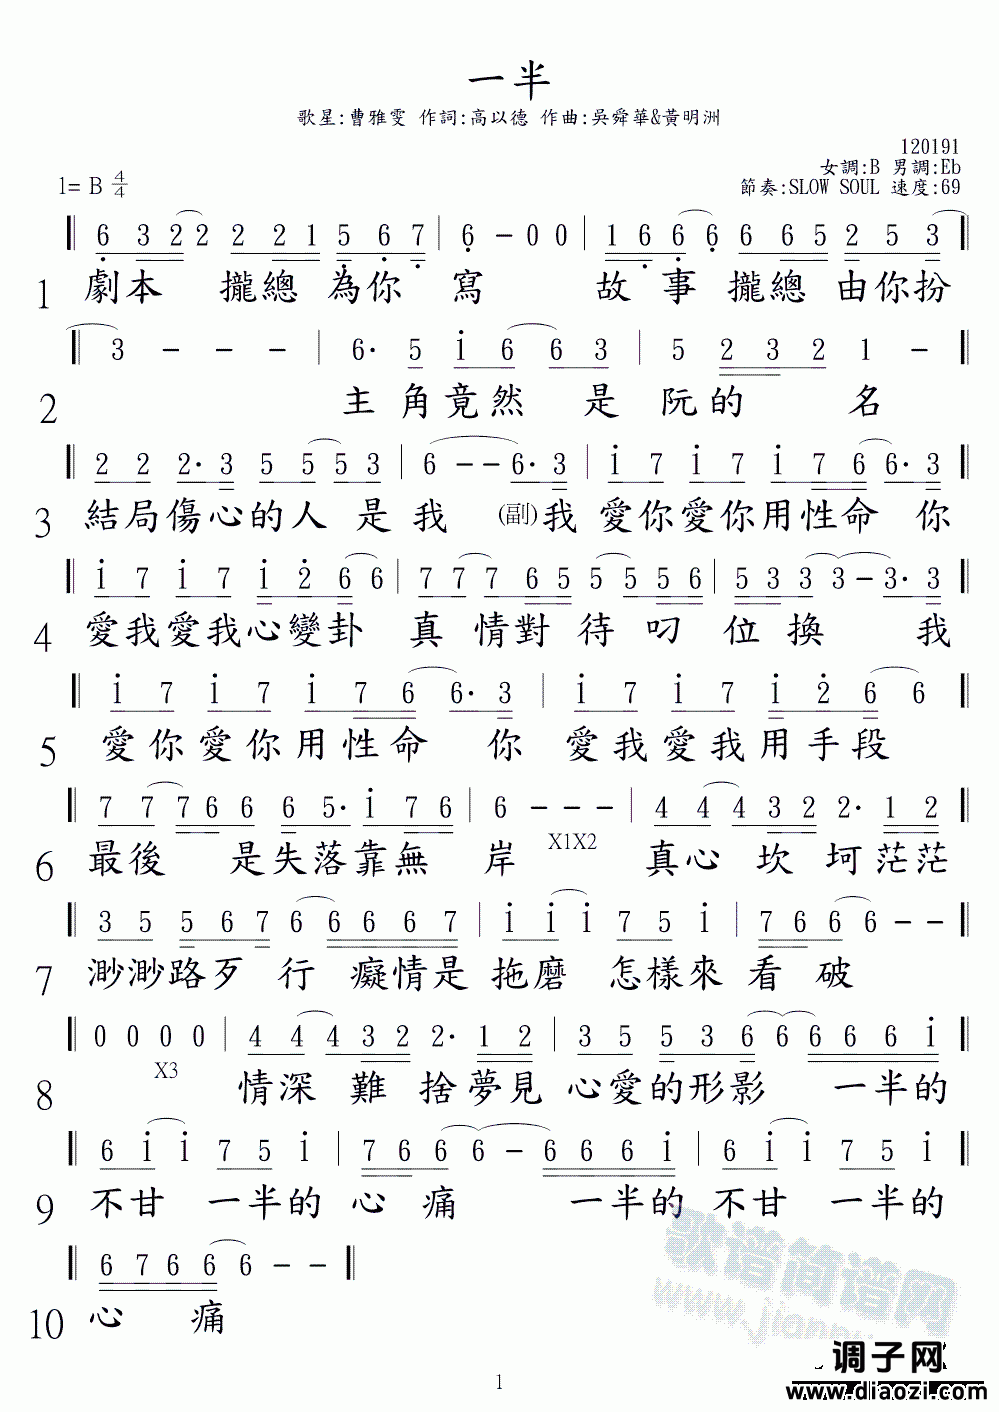 一半
歌星:曹雅雯 作詞:高以德 作曲:吳舜華&黃明洲
120191
女調:B 男調:Eb
1= B 4/4
節奏:SLOW SOUL 速度:69
‖ 6̣ 3 2 2 2 2 1 5̣ 6̣ 7̣ | 6̣ - 0 0 | 1 6̣ 6̣ 6̣ 6 6 5 2 5 3 ‖
1 劇本 攏總為你 寫 故 事 攏總 由你扮
‖ 3 - - - | 6· 5 i 6 6 3 | 5 2 3 2 1 - ‖
2 主 角竟然 是 阮的 名
‖ 2 2 2· 3 5 5 5 3 | 6 - - 6· 3 | i 7 i 7 i 7 6 6· 3 ‖
3 結局傷心的人 是我 (副)我 愛你愛你用性命 你
‖ i 7 i 7 i 2̇ 6 6 | 7 7 7 6 5 5 5 5 6 | 5 3 3 3 - 3· 3 ‖
4 愛我愛我心變卦 真 情對 待 叼 位 換 我
‖ i 7 i 7 i 7 6 6· 3 | i 7 i 7 i 2̇ 6 6 ‖
5 愛你愛你用性命 你 愛我愛我用手段
‖ 7 7 7 6 6 6 5· i 7 6 | 6 - - - | 4 4 4 3 2 2· 1 2 ‖
6 最後 是失落靠無 岸 X1X2 真心 坎 坷茫茫
‖ 3 5 5 6 7 6 6 6 6 7 | i i i 7 5 i | 7 6 6 6 - - ‖
7 渺渺路歹 行 癡情是 拖磨 怎樣來 看 破
‖ 0 0 0 0 | 4 4 4 3 2 2· 1 2 | 3 5 5 3 6 6 6 6 6 i ‖
8 X3 情深 難 捨夢見 心愛的形影 一半的
‖ 6 i i 7 5 i | 7 6 6 6 - 6 6 6 i | 6 i i 7 5 i ‖
9 不甘 一半的 心 痛 一半的 不甘 一半的
‖ 6 7 6 6 6 - - ‖
10 心 痛
歌谱简谱网
1
调子网
www.diaozi.com